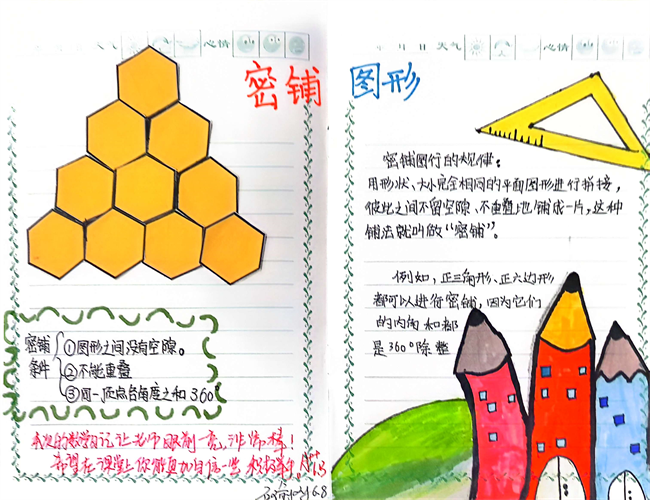 天气 心情
密铺 图形
月 日 天气 心情
密铺条件
①图形之间没有空隙。
②不能重叠
③同一顶点各角度之和360°
密铺图行的规律:
用形状、大小完全相同的平面图形进行拼接,
彼此之间不留空隙、不重叠地铺成一片,这种
铺法就叫做“密铺”。
例如,正三角形、正六边形
都可以进行密铺,因为它们
的内角和都
是360°除整
你的数学日记让老师眼前一亮,非常棒!
希望在课堂上你能更加自信一些
6.8